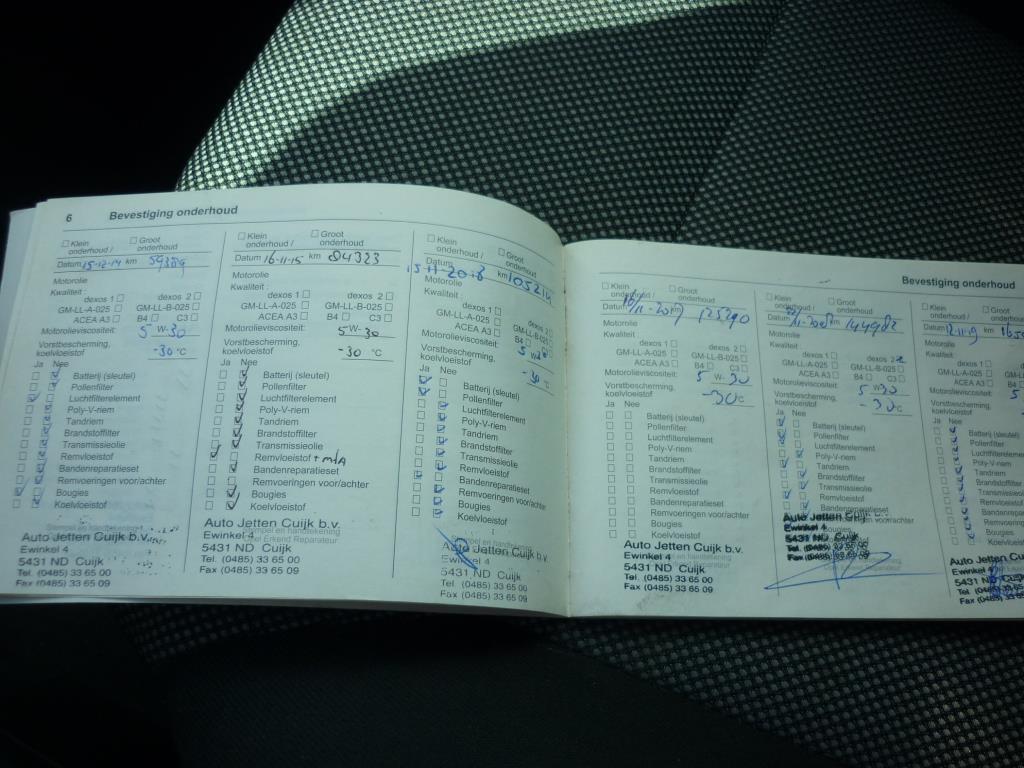 6 Bevestiging onderhoud
Klein onderhoud / Groot onderhoud
Datum 15-12-14 km
Motorolie
Kwaliteit :
dexos 1 dexos 2
GM-LL-A-025 GM-LL-B-025
ACEA A3 B4 C3
Motorolieviscositeit: 5 W-30
Vorstbescherming, koelvloeistof -30 °C
Ja Nee
Batterij (sleutel)
Pollenfilter
Luchtfilterelement
Poly-V-riem
Tandriem
Brandstoffilter
Transmissieolie
Remvloeistof
Bandenreparatieset
Remvoeringen voor/achter
Bougies
Koelvloeistof
Stempel en handtekening
Auto Jetten Cuijk b.v.
Ewinkel 4
5431 ND Cuijk
Tel. (0485) 33 65 00
Fax (0485) 33 65 09
Klein onderhoud / Groot onderhoud
Datum 16-11-15 km 84323
Motorolie
Kwaliteit :
dexos 1 dexos 2
GM-LL-A-025 GM-LL-B-025
ACEA A3 B4 C3
Motorolieviscositeit: 5W-30
Vorstbescherming, koelvloeistof -30 °C
Ja Nee
Batterij (sleutel)
Pollenfilter
Luchtfilterelement
Poly-V-riem
Tandriem
Brandstoffilter
Transmissieolie
Remvloeistof
Bandenreparatieset
Remvoeringen voor/achter
Bougies
Koelvloeistof
Auto Jetten Cuijk b.v.
Ewinkel 4
5431 ND Cuijk
Tel. (0485) 33 65 00
Fax (0485) 33 65 09
Klein onderhoud / Groot onderhoud
Datum km
Motorolie
Kwaliteit :
dexos 1 dexos 2
GM-LL-A-025 GM-LL-B-025
ACEA A3 B4 C3
Motorolieviscositeit: 5 W
Vorstbescherming, koelvloeistof -30 °C
Ja Nee
Batterij (sleutel)
Pollenfilter
Luchtfilterelement
Poly-V-riem
Tandriem
Brandstoffilter
Transmissieolie
Remvloeistof
Bandenreparatieset
Remvoeringen voor/achter
Bougies
Koelvloeistof
Auto Jetten Cuijk b.v.
Ewinkel 4
5431 ND Cuijk
Tel. (0485) 33 65 00
Fax (0485) 33 65 09
Bevestiging onderhoud
Klein onderhoud / Groot onderhoud
Datum km
Motorolie
Kwaliteit :
dexos 1 dexos 2
GM-LL-A-025 GM-LL-B-025
ACEA A3 B4 C3
Motorolieviscositeit: 5 W-30
Vorstbescherming, koelvloeistof -30 °C
Ja Nee
Batterij (sleutel)
Pollenfilter
Luchtfilterelement
Poly-V-riem
Tandriem
Brandstoffilter
Transmissieolie
Remvloeistof
Bandenreparatieset
Remvoeringen voor/achter
Bougies
Koelvloeistof
Auto Jetten Cuijk b.v.
Ewinkel 4
5431 ND Cuijk
Tel. (0485) 33 65 00
Fax (0485) 33 65 09
Klein onderhoud / Groot onderhoud
Datum km
Motorolie
Kwaliteit :
dexos 1 dexos 2
GM-LL-A-025 GM-LL-B-025
ACEA A3 B4 C3
Motorolieviscositeit: 5 W30
Vorstbescherming, koelvloeistof -30 °C
Ja Nee
Batterij (sleutel)
Pollenfilter
Luchtfilterelement
Poly-V-riem
Tandriem
Brandstoffilter
Transmissieolie
Remvloeistof
Auto Jetten Cuijk b.v.
Klein onderhoud / Groot onderhoud
Datum 12-11-19 km
Motorolie
Kwaliteit :
dexos 1
GM-LL-A-025
ACEA A3
Motorolieviscositeit: 5
Vorstbescherming, koelvloeistof
Ja Nee
Batterij (sleutel)
Pollenfilter
Luchtfilterelement
Poly-V-riem
Tandriem
Brandstoffilter
Transmissieolie
Remvloeistof
Bougies
Auto Jetten
Ewinkel 4
5431 ND Cuijk
Tel. (0485)
Fax (0485) 33 65